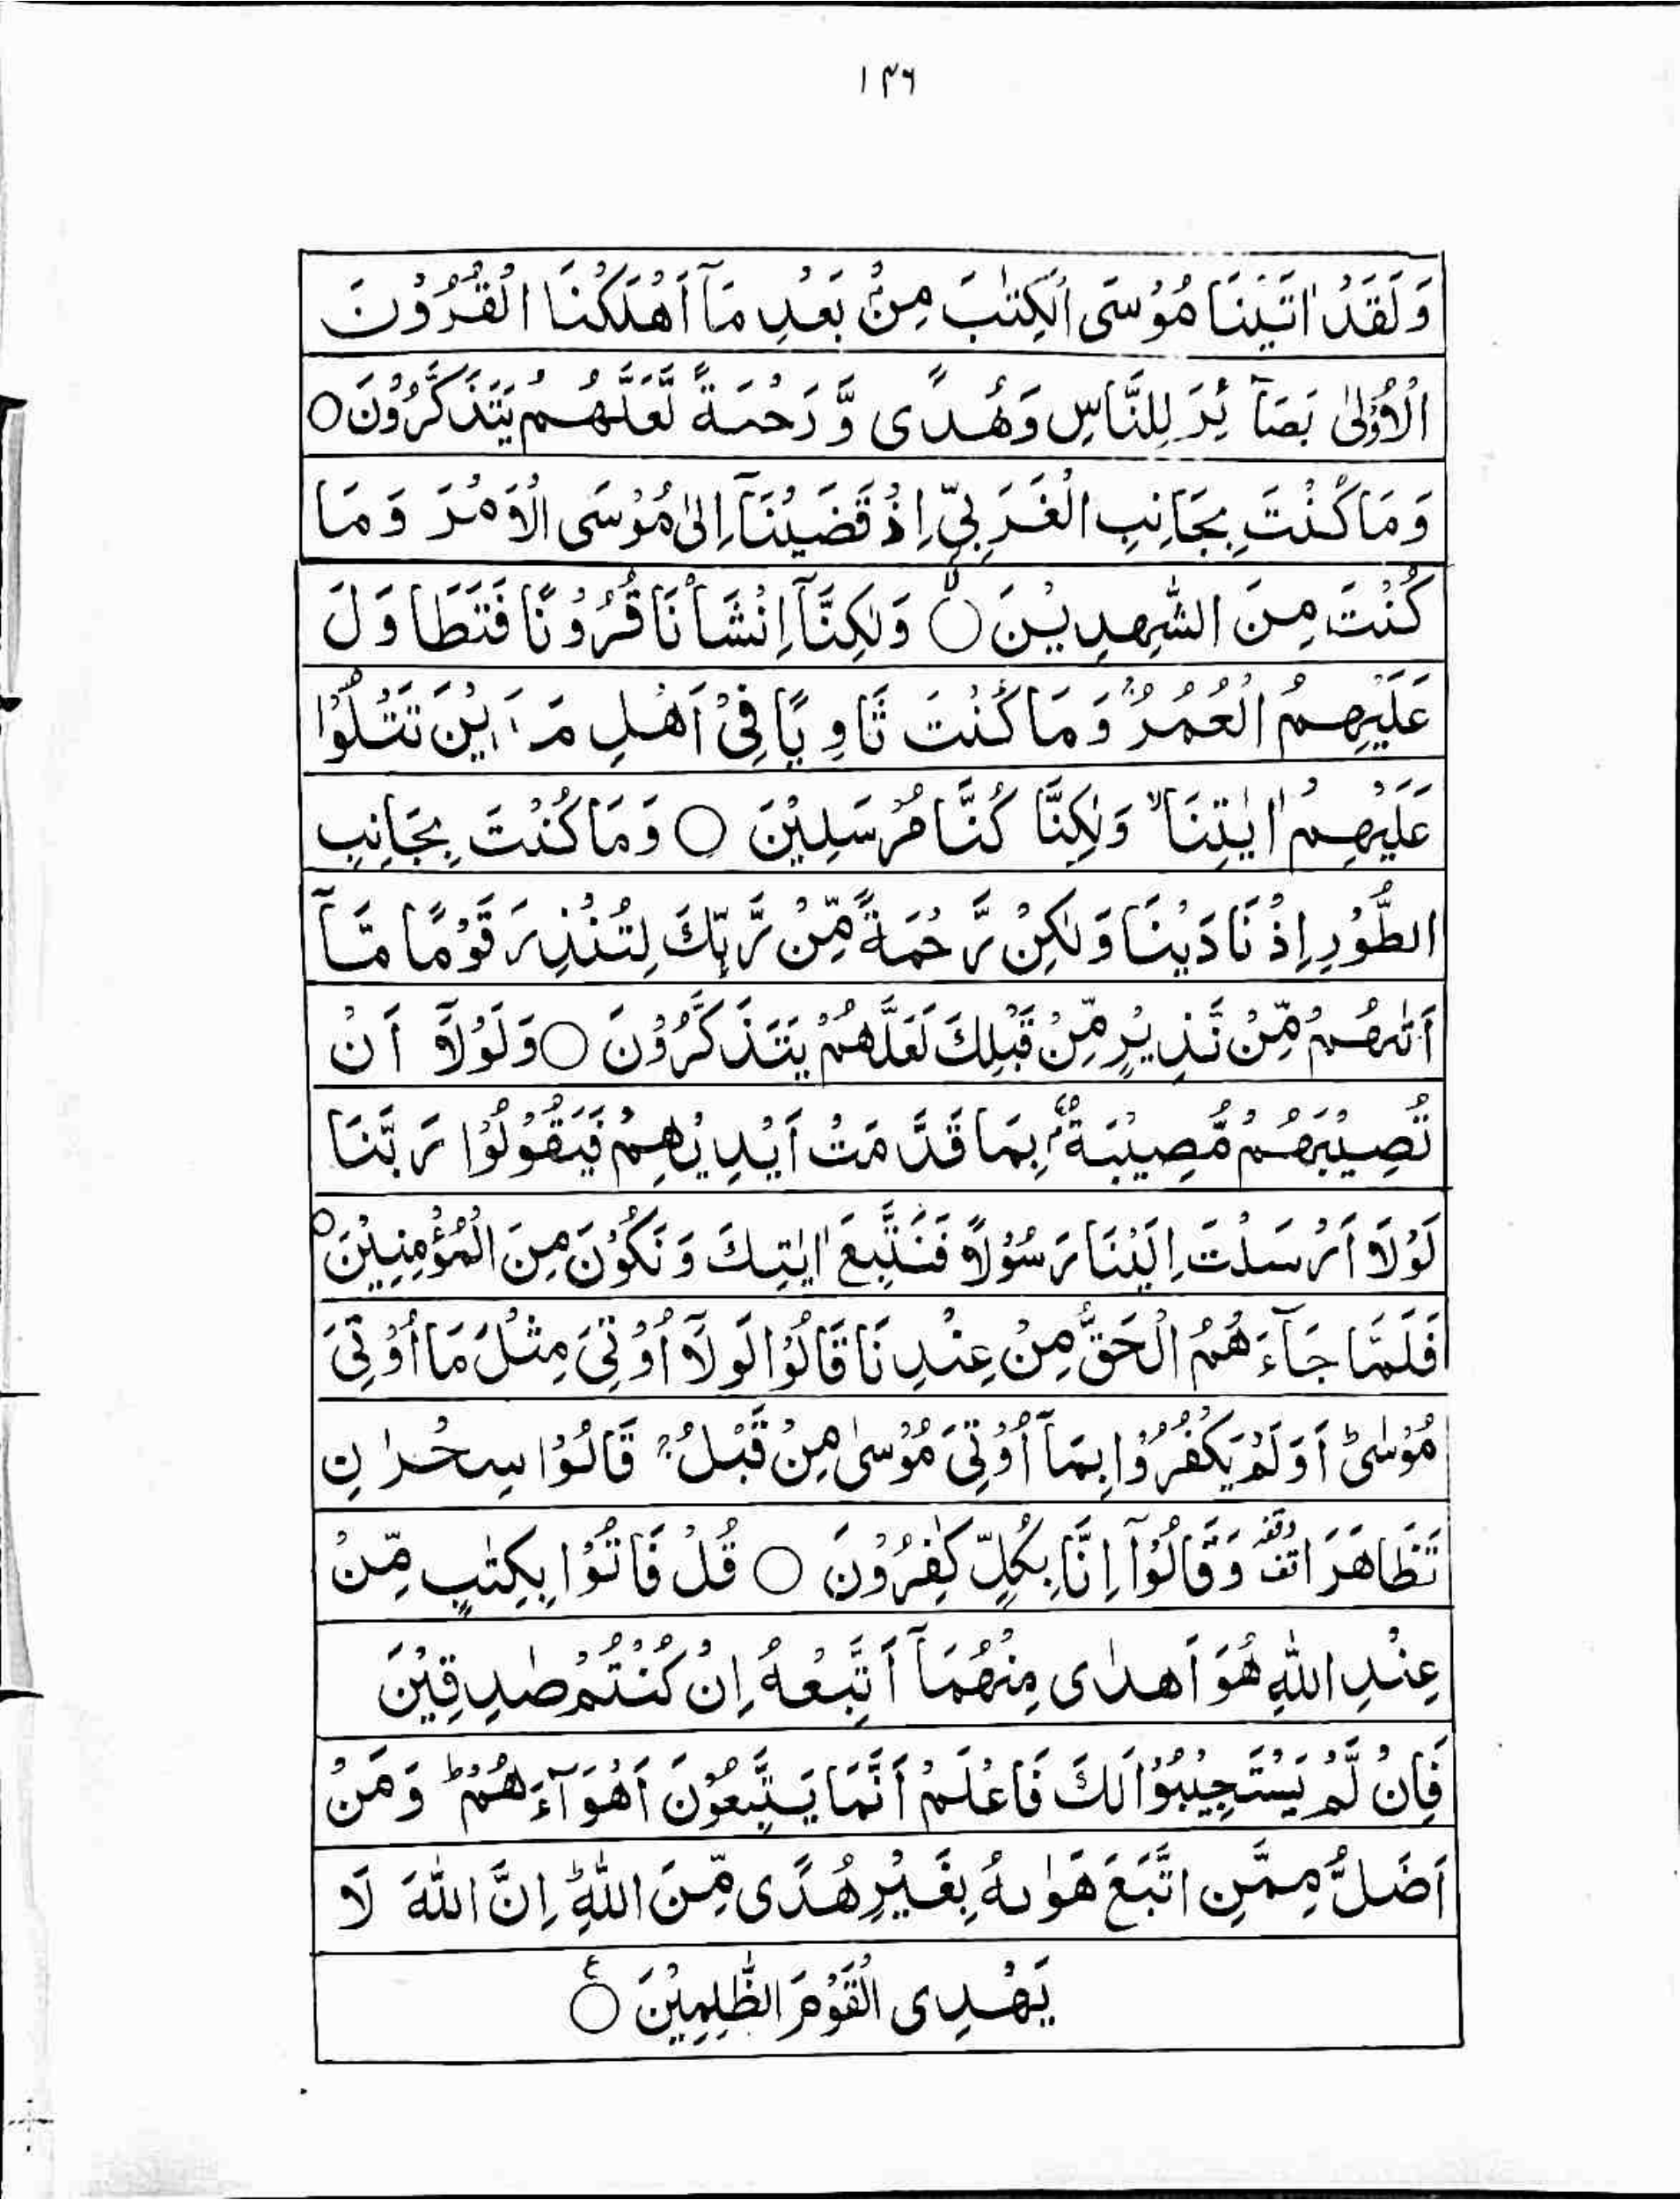 ۱۴۶
وَلَقَدْ اٰتَيْنَا مُوْسَى الْكِتٰبَ مِنْۢ بَعْدِ مَآ اَهْلَكْنَا الْقُرُوْنَ
الْاُوْلٰى بَصَآئِرَ لِلنَّاسِ وَهُدًى وَّ رَحْمَةً لَّعَلَّهُمْ يَتَذَكَّرُوْنَ○
وَمَا كُنْتَ بِجَانِبِ الْغَرْبِيِّ اِذْ قَضَيْنَآ اِلٰى مُوْسَى الْاَمْرَ وَمَا
كُنْتَ مِنَ الشّٰهِدِيْنَ○ۙ وَلٰكِنَّآ اِنْشَاْنَا قُرُوْنًا فَتَطَاوَلَ
عَلَيْهِمُ الْعُمُرُۚ وَمَا كُنْتَ ثَاوِيًا فِيْٓ اَهْلِ مَدْيَنَ تَتْلُوْا
عَلَيْهِمْ اٰيٰتِنَاۙ وَلٰكِنَّا كُنَّا مُرْسَلِيْنَ ○ وَمَا كُنْتَ بِجَانِبِ
الطُّوْرِ اِذْ نَادَيْنَا وَلٰكِنْ رَّحْمَةً مِّنْ رَّبِّكَ لِتُنْذِرَ قَوْمًا مَّآ
اَتٰىهُمْ مِّنْ نَّذِيْرٍ مِّنْ قَبْلِكَ لَعَلَّهُمْ يَتَذَكَّرُوْنَ ○ وَلَوْلَآ اَنْ
تُصِيْبَهُمْ مُّصِيْبَةٌۢ بِمَا قَدَّمَتْ اَيْدِيْهِمْ فَيَقُوْلُوْا رَبَّنَا
لَوْلَآ اَرْسَلْتَ اِلَيْنَا رَسُوْلًا فَنَتَّبِعَ اٰيٰتِكَ وَنَكُوْنَ مِنَ الْمُؤْمِنِيْنَ○
فَلَمَّا جَآءَهُمُ الْحَقُّ مِنْ عِنْدِنَا قَالُوْا لَوْلَآ اُوْتِيَ مِثْلَ مَا اُوْتِيَ
مُوْسٰىؕ اَوَلَمْ يَكْفُرُوْا بِمَآ اُوْتِيَ مُوْسٰى مِنْ قَبْلُۚ قَالُوْا سِحْرٰنِ
تَظَاهَرَاࣞ وَقَالُوْٓا اِنَّا بِكُلٍّ كٰفِرُوْنَ ○ قُلْ فَاْتُوْا بِكِتٰبٍ مِّنْ
عِنْدِ اللّٰهِ هُوَ اَهْدٰى مِنْهُمَآ اَتَّبِعْهُ اِنْ كُنْتُمْ صٰدِقِيْنَ
فَاِنْ لَّمْ يَسْتَجِيْبُوْا لَكَ فَاعْلَمْ اَنَّمَا يَتَّبِعُوْنَ اَهْوَآءَهُمْؕ وَمَنْ
اَضَلُّ مِمَّنِ اتَّبَعَ هَوٰىهُ بِغَيْرِ هُدًى مِّنَ اللّٰهِؕ اِنَّ اللّٰهَ لَا
يَهْدِى الْقَوْمَ الظّٰلِمِيْنَ ○ع